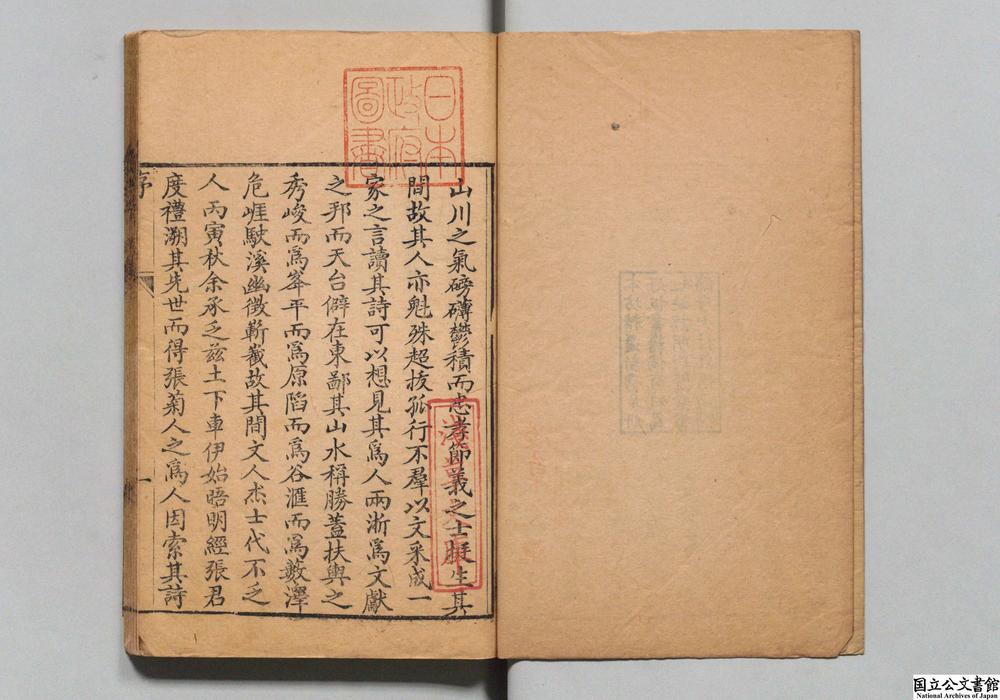 日本
政府
圖書
山川之氣磅礴鬱積而忠孝節義之士挺生其
間故其人亦魁殊超拔孤行不羣以文采成一
家之言讀其詩可以想見其爲人兩浙爲文獻
之邦而天台僻在東鄙其山水稱勝蓋扶輿之
秀峻而爲峯平而爲原陷而爲谷滙而爲藪澤
危崕駛溪幽徴嶄巀故其間文人杰士代不乏
人丙寅秋余承乏兹土下車伊始晤明經張君
度禮溯其先世而得張菊人之爲人因索其詩
序
一
国立公文書館
National Archives of Japan